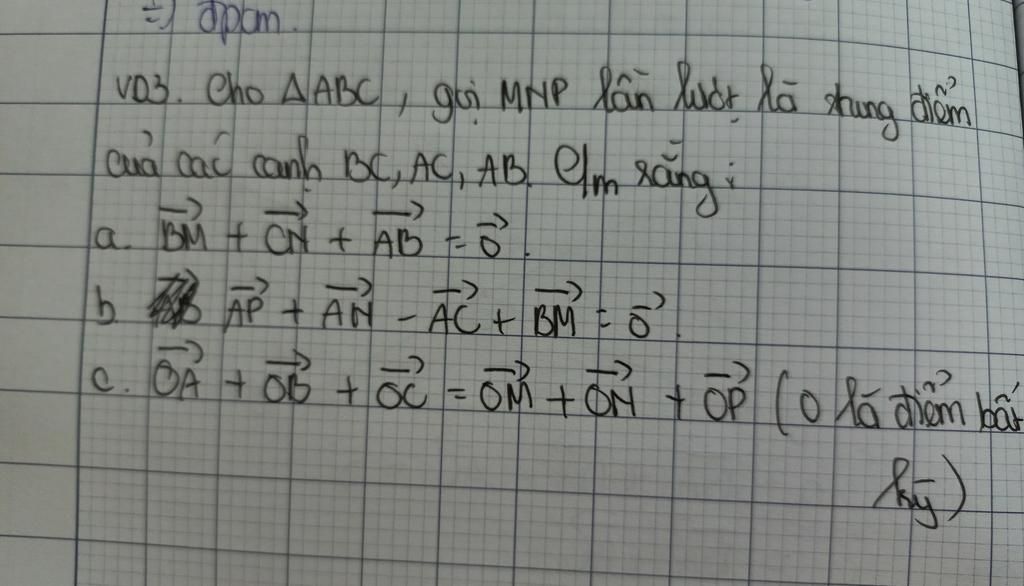 =) đpcm.
VD3. Cho ΔABC, gọi MNP lần lượt là trung điểm
của các cạnh BC, AC, AB. C/m rằng:
a. \overrightarrow{BM} + \overrightarrow{CN} + \overrightarrow{AB} = \vec{0}.
b. \overrightarrow{AP} + \overrightarrow{AN} - \overrightarrow{AC} + \overrightarrow{BM} = \vec{0}.
c. \overrightarrow{OA} + \overrightarrow{OB} + \overrightarrow{OC} = \overrightarrow{OM} + \overrightarrow{ON} + \overrightarrow{OP} (O là điểm bất
kỳ)